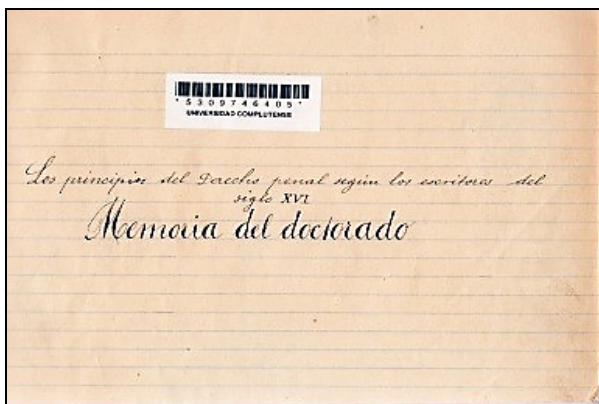 *5309746405*
UNIVERSIDAD COMPLUTENSE
Los principios del Derecho penal según los escritores del
siglo XVI
Memoria del doctorado